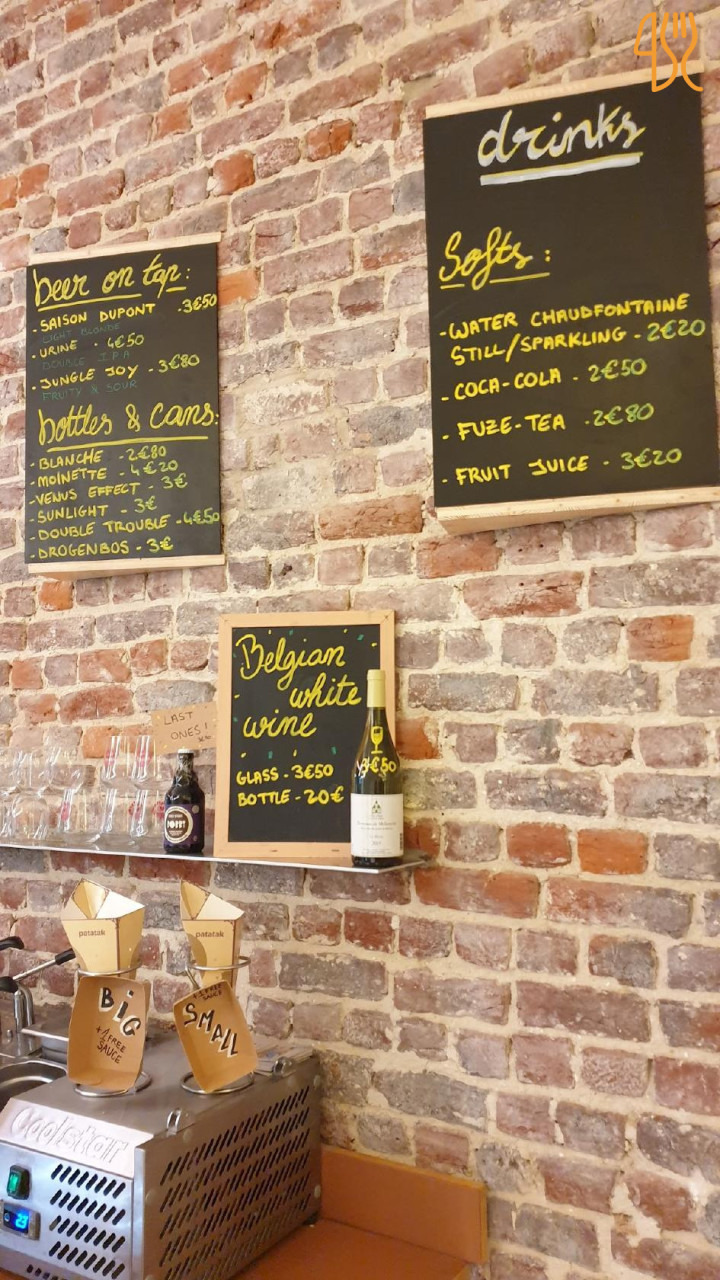 beer on tap:
- SAISON DUPONT - 3€50
LIGHT BLONDE
- URINE - 4€50
DOUBLE I.P.A
- JUNGLE JOY - 3€80
FRUITY & SOUR
bottles & cans:
- BLANCHE - 2€80
- MOINETTE - 4€20
- VENUS EFFECT - 3€
- SUNLIGHT - 3€
- DOUBLE TROUBLE - 4€50
- DROGENBOS - 3€
drinks
Softs :
- WATER CHAUDFONTAINE
STILL/SPARKLING - 2€20
- COCA-COLA - 2€50
- FUZE-TEA - 2€80
- FRUIT JUICE - 3€20
Belgian
white
wine
GLASS - 3€50
BOTTLE - 20€
3€50
LAST
ONES!
patatak
patatak
BIG
+ 1 FREE
SAUCE
+ 1 FREE
SAUCE
SMALL
Coolstar
23